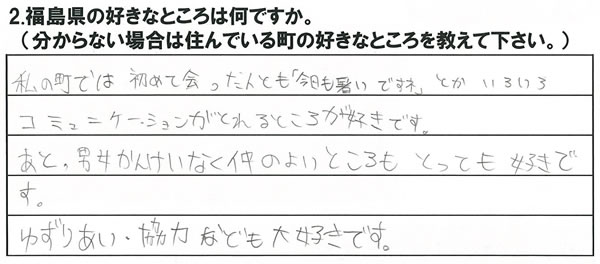 2.福島県の好きなところは何ですか。
（分からない場合は住んでいる町の好きなところを教えて下さい。）
私の町では 初めて会った人とも「今日も暑いですネ」とか いろいろ
コミュニケーションがとれるところが好きです。
あと、男女かんけいなく仲のよいところも とっても 好きで
す。
ゆずりあい・協力なども大好きです。